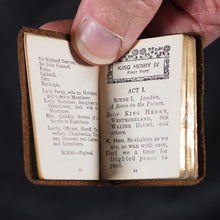 Sir Richard Vernon.
Sir John Falstaff.
Poins.
Gadshill.
Peto.
Bardolph.
Lady Percy, wife to Hotspur, and sister to Mortimer.
Lady Mortimer, daughter to Glendower, and wife to Mortimer.
Mrs. Quickly, hostess of a tavern in Eastcheap.
Lords, Officers, Sheriff, Vintner, Chamberlain, Drawers, Carriers, Travellers, and Attendants.
SCENE—England.
KING HENRY IV
FIRST PART
ACT I.
SCENE I. London.
A Room in the Palace.
Enter KING HENRY,
WESTMORELAND, SIR
WALTER BLUNT, and
others.
K. Hen. So shaken as we
are, so wan with care,
Find we a time for
frighted peace to
pant,